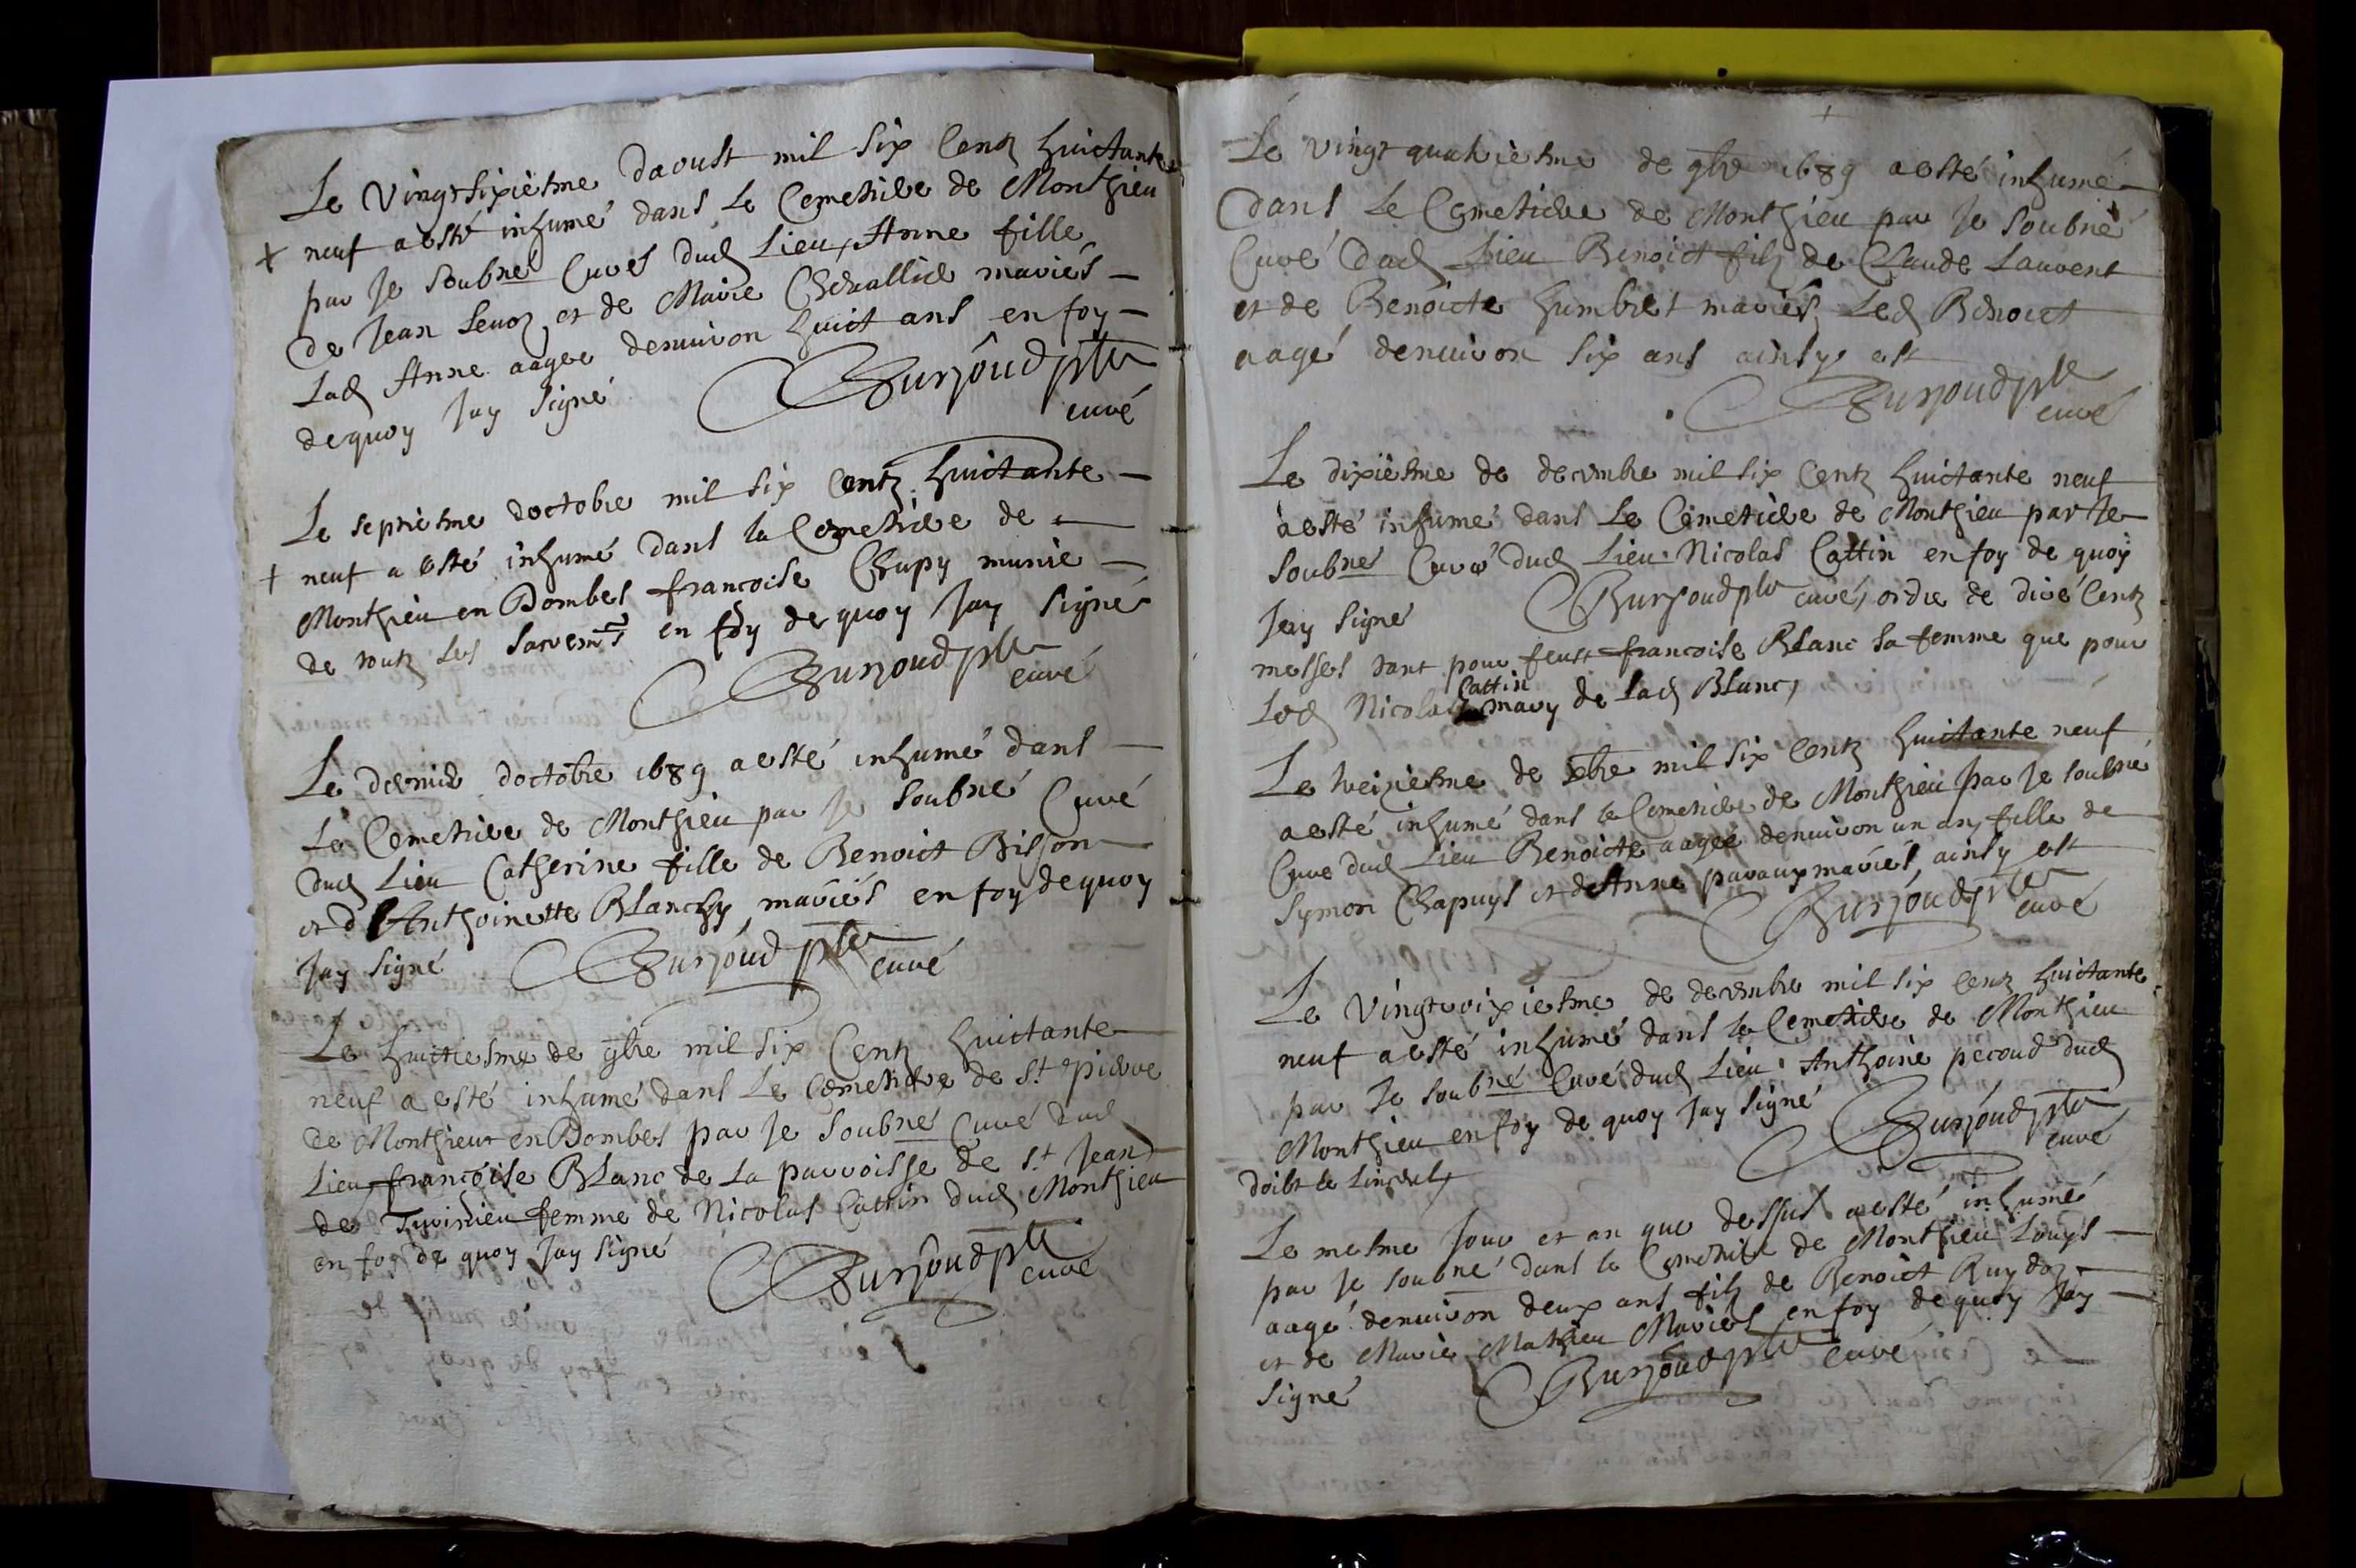 Le vingt sixiesme daoust mil six Centz huictante
+ neuf a esté inhumé dans le Cemetiere de Monthieu
par Je Soubné Curés dud Lieu, Anne fille
de Jean Levoz et de Marie Chevallier mariés —
Lad Anne aagee denuiron huict ans en foy —
dequoy Jay signé Burjoud ptre
curé
Le septiesme doctobre mil six Centz huictante —
+ neuf a esté inhumé dans le Cemetiere de —
Monthieu en Dombes francoise Chapy munie —
de toutz les sacremts en foy de quoy Jay signé
Burjoud ptre
curé
Le dernier doctobre 1689 a esté inhumé dans —
Le Cemetiere de Monthieu par Je soubné Curé
dud Lieu Catherine fille de Benoict Bisson
et d'Anthoinette Blanchy mariés en foy dequoy
Jay signé Burjoud ptre curé
Le huictiesme de 9bre mil six Centz huictante
neuf a esté inhumé dans Le Cemetiere de St pierre
de Monthieux en Dombes par Je Soubné Curé dud
Lieu, francoise Blanc de La parroisse de St Jean
de Turinieu femme de Nicolas Cattin dud Monthieu
en foy de quoy Jay signé Burjoud ptre
curé
Le vingt quatriesme de 9bre 1689 a esté inhumé
dans Le Cemetiere de Monthieu par Je Soubné
Curé dud Lieu Benoict filz de Claude Laurent
et de Benoicte humbert mariés Led Benoict
aagé denuiron six ans ainsy est
Burjoud ptre
curé
Le dixiesme de decembre mil six Centz huictante neuf
a esté inhumé dans Le Cimetiere de Monthieu par Je
Soubné Curé dud Lieu Nicolas Cattin en foy de quoy
Jay signé Burjoud ptre curé, ordre de dire Centz
messes tant pour feust francoise Blanc sa femme que pour
Led Nicolas Cattin mary de Lad Blanc,
Le treiziesme de Xbre mil six Centz huictante neuf
a esté inhumé dans le Cemetiere de Monthieu par Je soubné
Curé dud Lieu Benoicte aagée denuiron un an, fille de
Symon Chapuys et d'Anne paraux mariés, ainsy est
Burjoud ptre
curé
Le Vingt de decembre mil six Centz huictante
neuf a esté inhumé dans le Cemetiere de Monthieu
par Je soubné Curé dud Lieu Anthoine pecoud dud
Monthieu en foy de quoy Jay signé Burjoud ptre
curé
doibt le
Le mesme Jour et an que dessus a esté inhumé
par Je soubné dans le Cemetiere de Monthieu Louys —
aagé denuiron deux ans filz de Benoict Ruydoz —
et de Marie Mathieu Mariés en foy dequoy Jay —
Signé Burjoud ptre curé